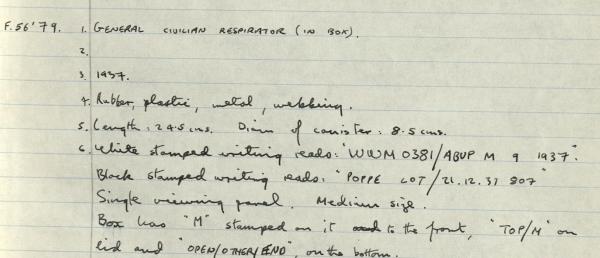 F.56'79. 1. GENERAL CIVILIAN RESPIRATOR (IN BOX).
2.
3. 1937.
4. Rubber, plastic, metal, webbing.
5. Length: 24.5 cms. Diam of canister: 8.5 cms.
6. White stamped writing reads: "WWM 0381/ABUP M 9 1937".
Black stamped writing reads: "POPPE LOT/21.12.37 807"
Single viewing panel. Medium size.
Box has "M" stamped on it to the front, "TOP/M" on
lid and "OPEN/OTHER/END", on the bottom.